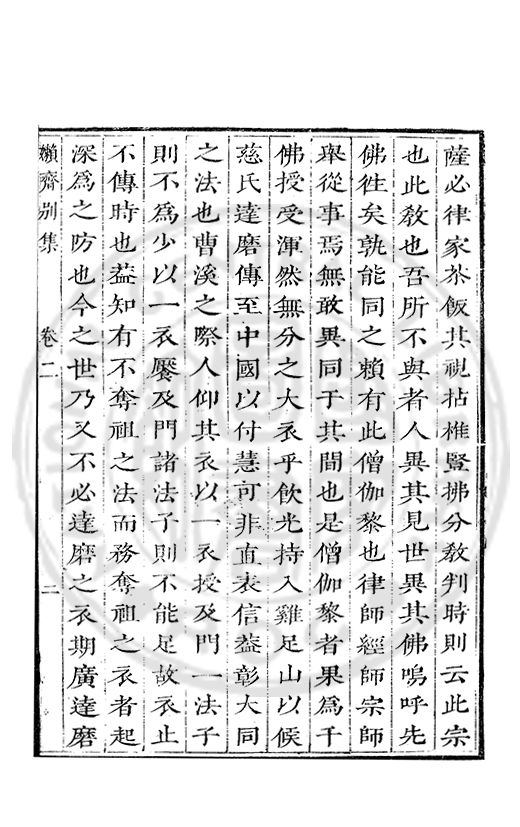 薩必律家茶飯其視拈椎豎拂分敎判時則云此宗
也此敎也吾所不與者人異其見世異其佛嗚呼先
佛徃矣孰能同之賴有此僧伽黎也律師經師宗師
舉從事焉無敢異同于其間也是僧伽黎者果爲千
佛授受渾然無分之大衣乎飮光持入雞足山以候
慈氏達磨傳至中國以付慧可非直表信葢彰大同
之法也曹溪之際人仰其衣以一衣授及門一法子
則不爲少以一衣饜及門諸法子則不能足故衣止
不傳時也葢知有不奪祖之法而務奪祖之衣者起
深爲之防也今之世乃又不必達磨之衣期廣達磨
嬾齋別集 卷二 二